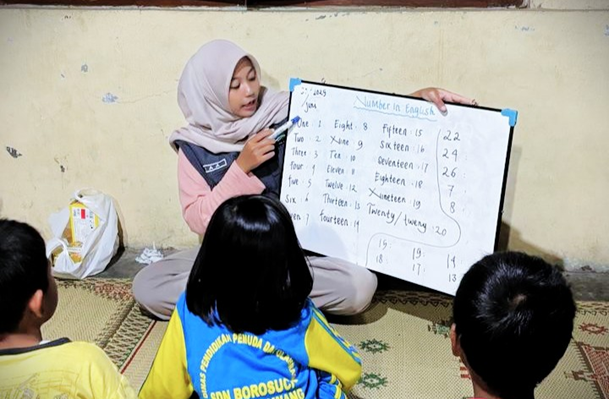 Number in English
One : 1
Two : 2
Three : 3
Four : 4
Five : 5
Six : 6
: 7
Eight : 8
Nine : 9
Ten : 10
Eleven : 11
Twelve : 12
Thirteen : 13
Fourteen : 14
Fifteen : 15
Sixteen : 16
Seventeen : 17
Eighteen : 18
Nineteen : 19
Twenty / : 20
22
24
26 :
7 :
8
15 : 19 : 14
18 17 : 13
PENDIDIKAN PEMUDA DA
SDN BOROSUCI